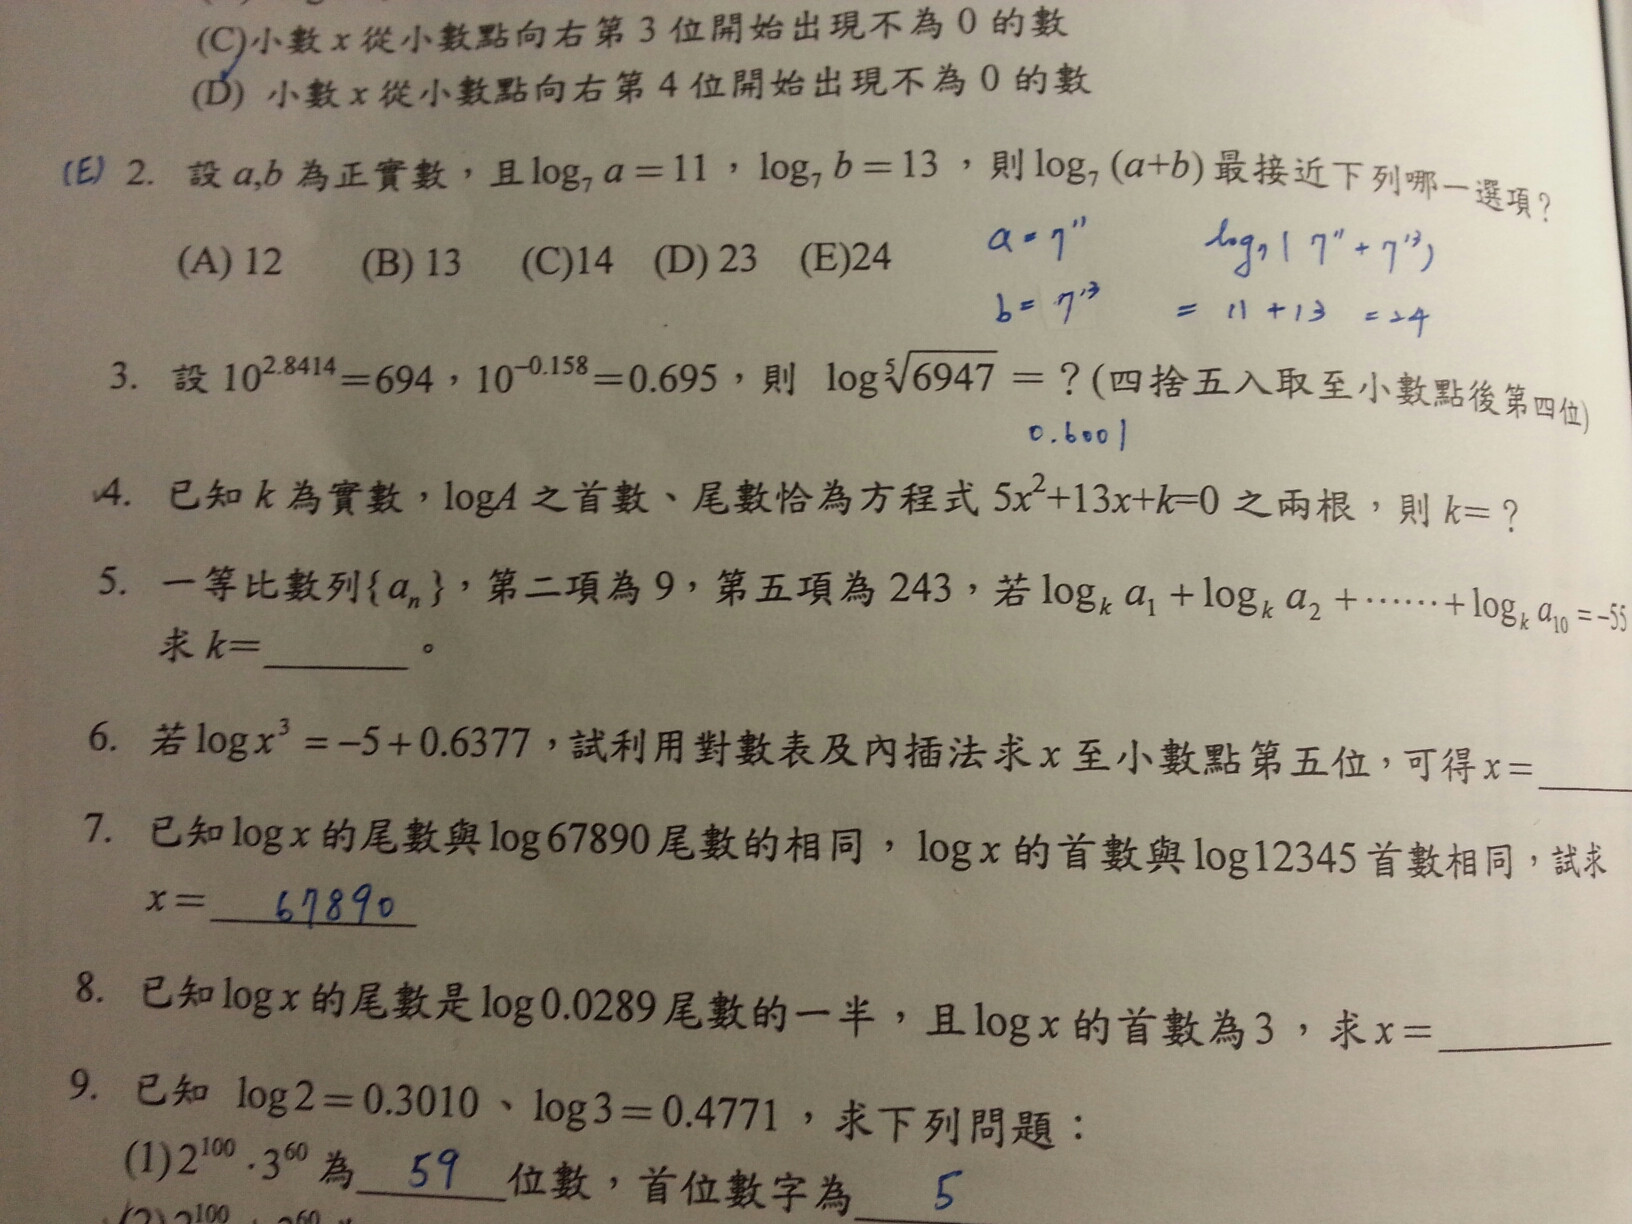 (C)小數 x 從小數點向右第 3 位開始出現不為 0 的數
(D) 小數 x 從小數點向右第 4 位開始出現不為 0 的數
(E) 2. 設 a,b 為正實數，且 log₇ a = 11，log₇ b = 13，則 log₇ (a+b) 最接近下列哪一選項？
(A) 12 (B) 13 (C)14 (D) 23 (E)24
a = 7¹¹ log₇(7¹¹ + 7¹³)
b = 7¹³ = 11 + 13 = 24
3. 設 10^2.8414=694，10^−0.158=0.695，則 log ⁵√6947 = ？(四捨五入取至小數點後第四位)
0.6001
4. 已知 k 為實數，logA 之首數、尾數恰為方程式 5x²+13x+k=0 之兩根，則 k=？
5. 一等比數列{aₙ}，第二項為 9，第五項為 243，若 logₖ a₁ + logₖ a₂ + …… + logₖ a₁₀ = −55
求 k=______。
6. 若 log x³ = −5 + 0.6377，試利用對數表及內插法求 x 至小數點第五位，可得 x=____
7. 已知 log x 的尾數與 log 67890 尾數的相同，log x 的首數與 log 12345 首數相同，試求
x = 67890
8. 已知 log x 的尾數是 log 0.0289 尾數的一半，且 log x 的首數為 3，求 x=______
9. 已知 log 2 = 0.3010、log 3 = 0.4771，求下列問題：
(1) 2¹⁰⁰ · 3⁶⁰ 為 59 位數，首位數字為 5